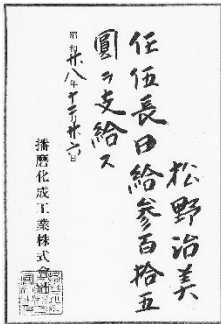 松野治美
任伍長日給参百拾五
圓ヲ支給ス
昭和廿八年十二月廿六日
播磨化成工業株式會社